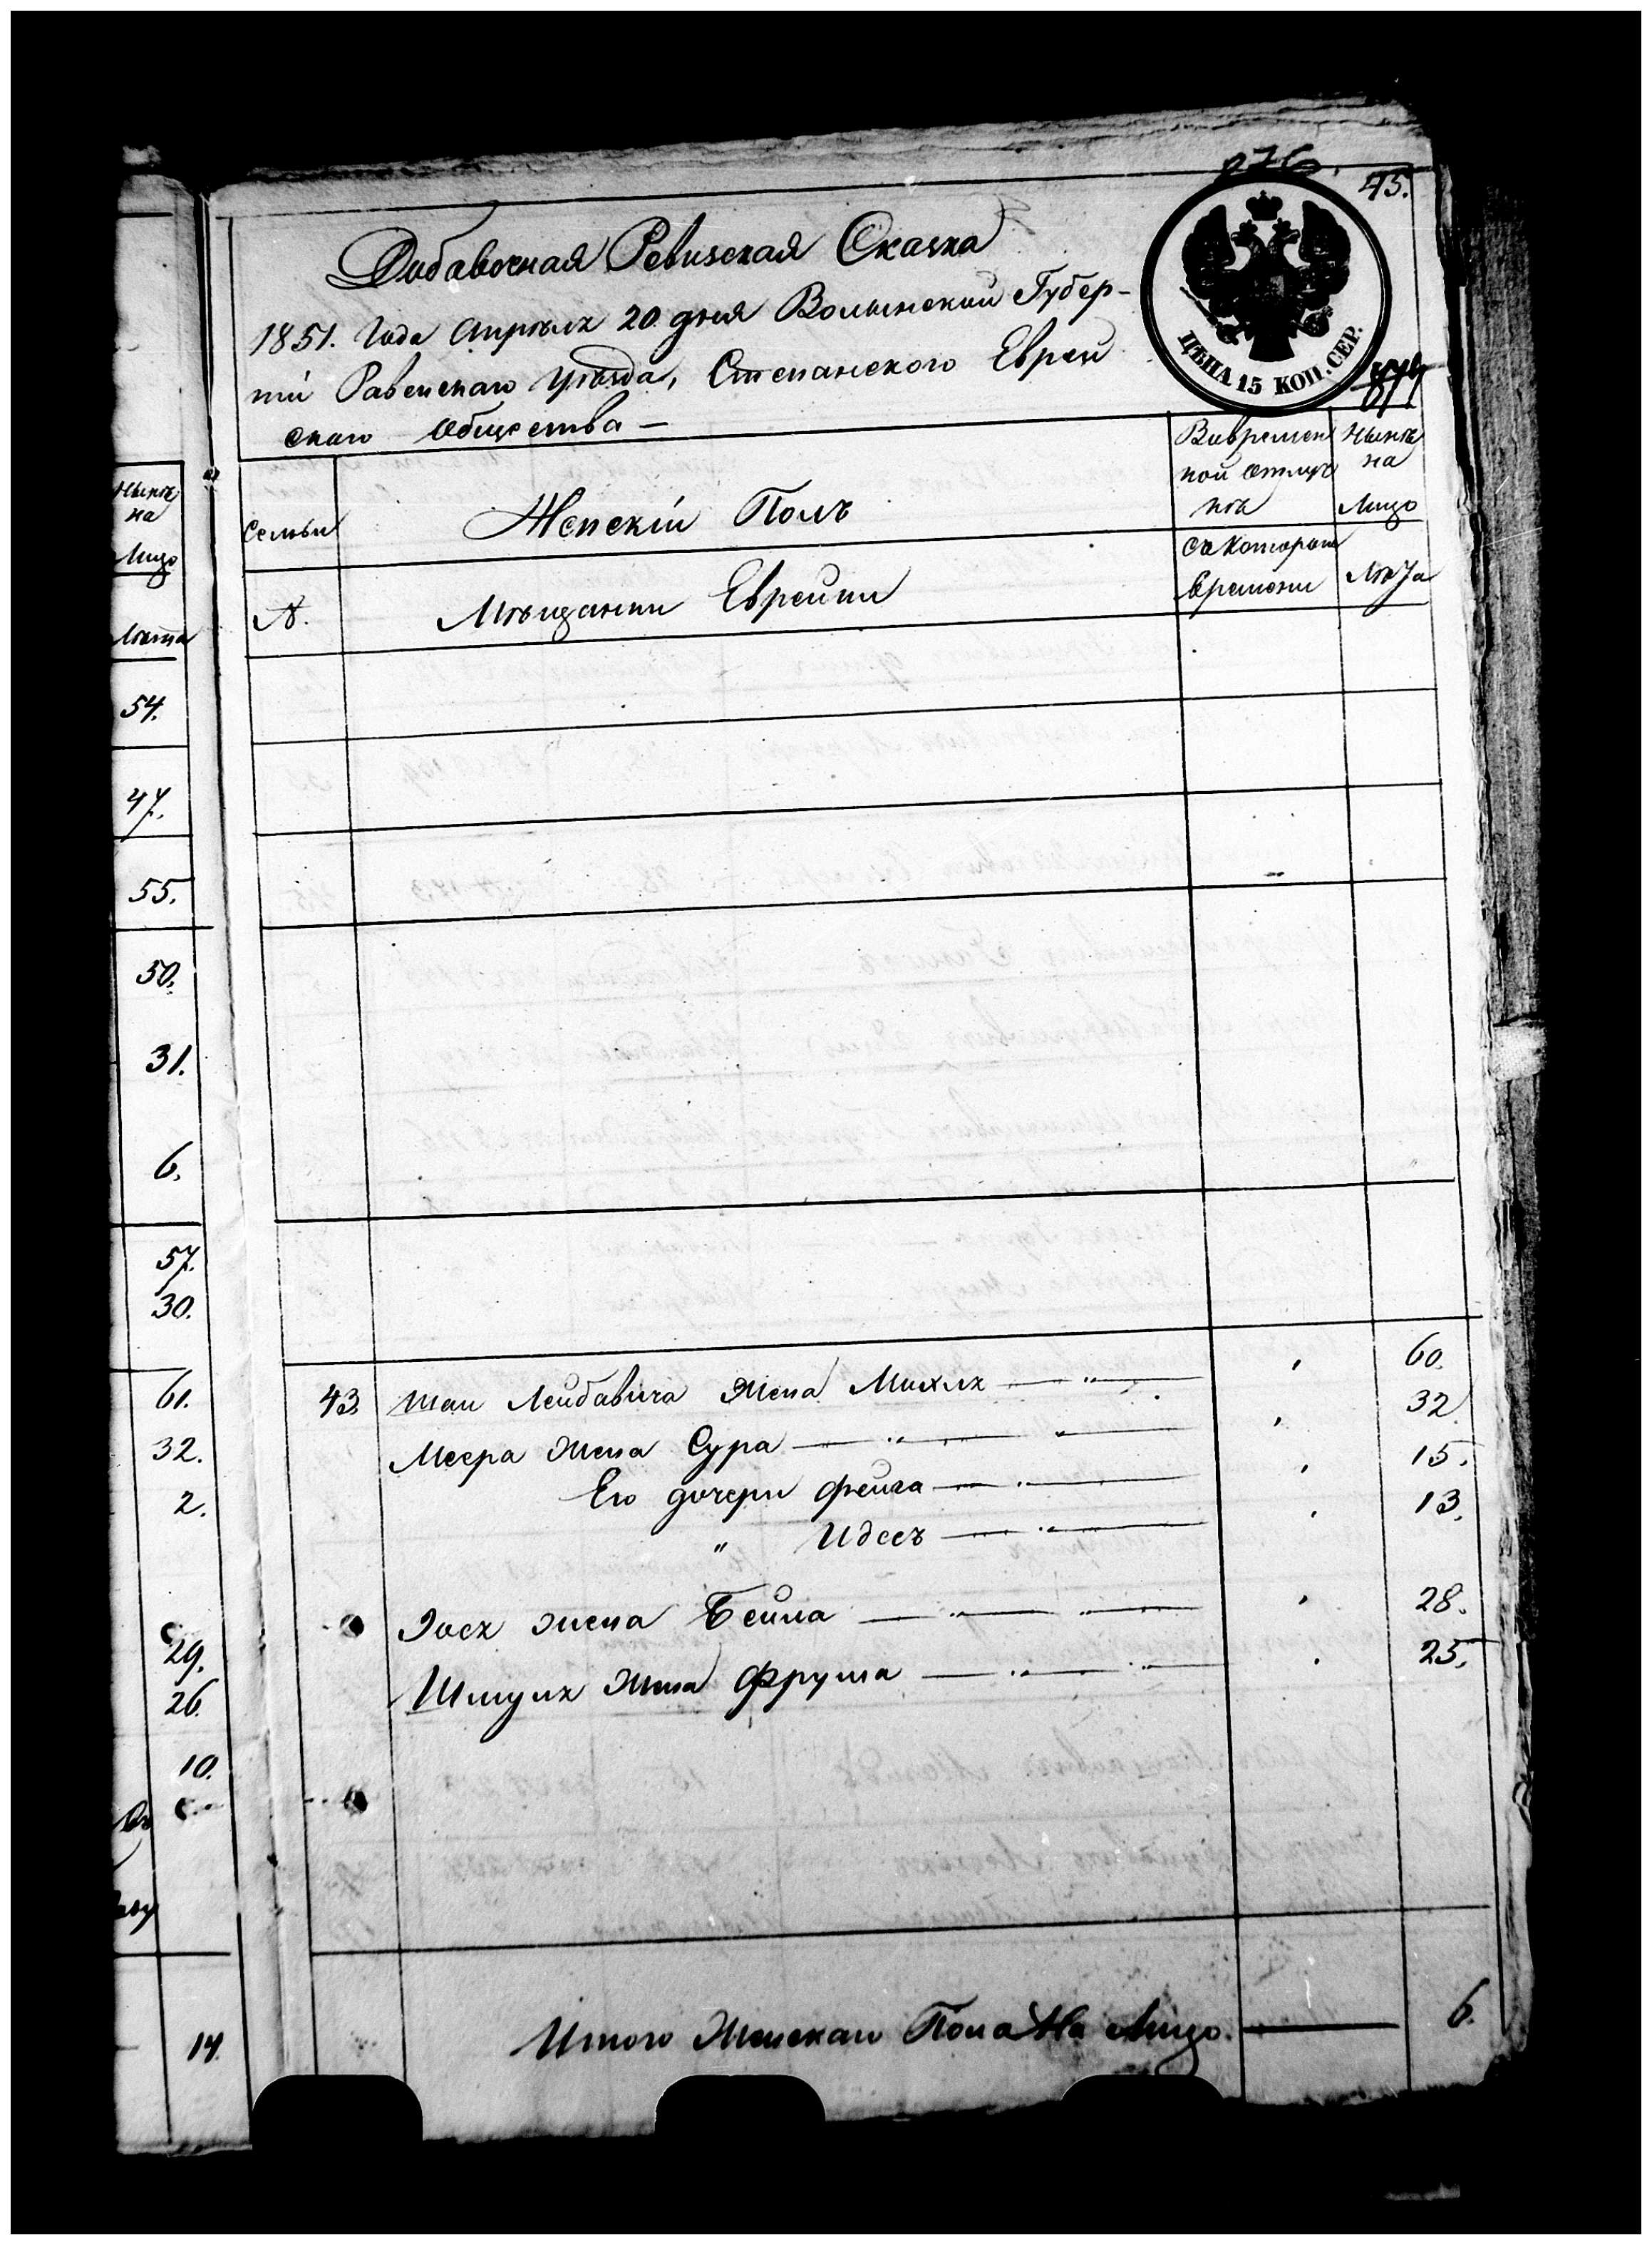 45.
ЦѢНА 15 КОП. СЕР.
Добавочная Ревизская Сказка
1851. Года Апрѣля 20 дня Волынской Губер-
ніи Равенскаго Уѣзда, Степанского Еврей
скаго Общества —
Нынѣ
на
Лицо
Лѣта
54.
47.
55.
50.
31.
6.
57.
30.
61.
32.
2.
29.
26.
10.
14.
Семьи
Женскій Полъ
Вовремен
ной отлуч
кѣ
Нынѣ
на
Лицо
№.
Мѣщанки Еврейки
Съ Котораго
Времени
Лѣта
43. Лейбавича Жена 60.
Меера жена Сура — " — " — 32.
Его дочери Фейга — " — 15.
" Идесъ — " — 13.
жена Бейла — " — " — 28.
Шмуля жена Фрума — " — " — 25.
Итого Женскаго Пола На Лицо. — 6.